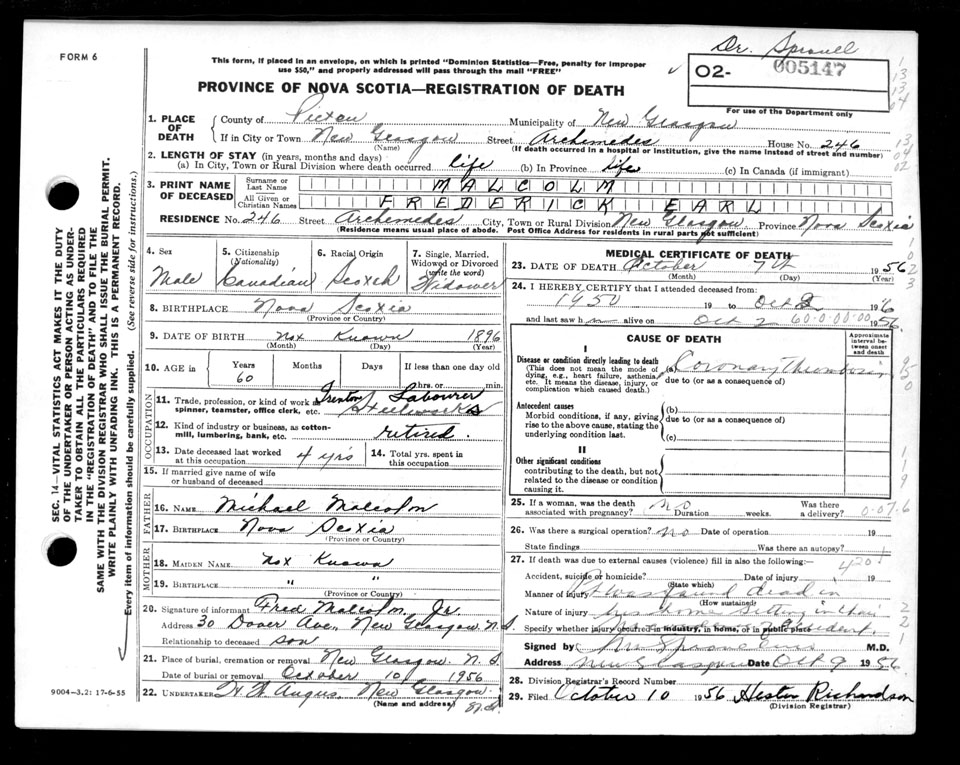 FORM 6
Dr. Sproull
This form, if placed in an envelope, on which is printed "Dominion Statistics—Free, penalty for improper
use $50," and properly addressed will pass through the mail "FREE"
02- 005147
For use of the Department only
PROVINCE OF NOVA SCOTIA—REGISTRATION OF DEATH
1. PLACE OF DEATH
County of Pictou Municipality of New Glasgow
If in City or Town New Glasgow Street Archemedes House No. 246
(Name) (If death occurred in a hospital or institution, give the name instead of street and number)
2. LENGTH OF STAY (in years, months and days)
(a) In City, Town or Rural Division where death occurred life (b) In Province life (c) In Canada (if immigrant)
3. PRINT NAME OF DECEASED
Surname or Last Name MALCOLM
All Given or Christian Names FREDERICK EARL
RESIDENCE No. 246 Street Archemedes City, Town or Rural Division New Glasgow Province Nova Scotia
(Residence means usual place of abode. Post Office Address for residents in rural parts not sufficient)
4. Sex Male
5. Citizenship (Nationality) Canadian
6. Racial Origin Scotch
7. Single, Married, Widowed or Divorced (write the word) Widower
8. BIRTHPLACE Nova Scotia
(Province or Country)
9. DATE OF BIRTH Not Known 1896
(Month) (Day) (Year)
10. AGE in Years 60 Months Days If less than one day old
hrs. or min.
OCCUPATION
11. Trade, profession, or kind of work as spinner, teamster, office clerk, etc. Trenton Labourer Steelworks
12. Kind of industry or business, as cotton-mill, lumbering, bank, etc. retired.
13. Date deceased last worked at this occupation 4 yrs
14. Total yrs. spent in this occupation
15. If married give name of wife or husband of deceased
FATHER
16. NAME Michael Malcolm
17. BIRTHPLACE Nova Scotia
(Province or Country)
MOTHER
18. MAIDEN NAME Not Known
19. BIRTHPLACE " "
(Province or Country)
20. Signature of informant Fred Malcolm Jr.
Address 30 Dover Ave, New Glasgow N.S.
Relationship to deceased son
21. Place of burial, cremation or removal New Glasgow. N.S.
Date of burial or removal October 10 1956
22. UNDERTAKER H. W. Angus, New Glasgow. N.S.
(Name and address)
MEDICAL CERTIFICATE OF DEATH
23. DATE OF DEATH October 7th 1956
(Month) (Day)
24. I HEREBY CERTIFY that I attended deceased from:
1950 19 to Oct 2 1956
and last saw him alive on Oct 2 1956
60-0-00-00
CAUSE OF DEATH
Approximate interval between onset and death
I
Disease or condition directly leading to death
(This does not mean the mode of dying, e.g., heart failure, asthenia, etc. It means the disease, injury, or complication which caused death.)
(a) Coronary Thrombosis
due to (or as a consequence of)
Antecedent causes
Morbid conditions, if any, giving rise to the above cause, stating the underlying condition last.
(b)
due to (or as a consequence of)
(c)
II
Other significant conditions
contributing to the death, but not related to the disease or condition causing it.
25. If a woman, was the death associated with pregnancy? no Duration weeks. Was there a delivery? 0-07.6
26. Was there a surgical operation? no Date of operation
State findings Was there an autopsy?
27. If death was due to external causes (violence) fill in also the following:
4201
Accident, suicide or homicide? Date of injury 19
(State which)
Manner of injury Pt was found dead in
(How sustained)
Nature of injury his home sitting in chair
Specify whether injury occurred in industry, in home, or in public place
Signed by Sproull M.D.
Address New Glasgow Date Oct 9 1956
28. Division Registrar's Record Number
29. Filed October 10 1956 Hester Richardson
(Division Registrar)
SEC. 14—VITAL STATISTICS ACT MAKES IT THE DUTY
OF THE UNDERTAKER OR PERSON ACTING AS UNDER-
TAKER TO OBTAIN ALL THE PARTICULARS REQUIRED
IN THE "REGISTRATION OF DEATH" AND TO FILE THE
SAME WITH THE DIVISION REGISTRAR WHO SHALL ISSUE THE BURIAL PERMIT.
WRITE PLAINLY WITH UNFADING INK. THIS IS A PERMANENT RECORD.
Every item of information should be carefully supplied. (See reverse side for instructions.)
9004-3.2: 17-6-55